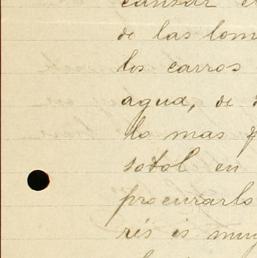 causar e
de las lom
los carros
agua, de
lo mas
sotol en
procurarlo
rés is muy